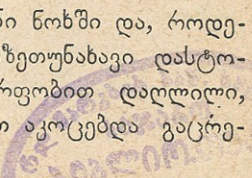 ნი ნოხში და, როდე-
ზეთუნახავი დასტო-
რფობით დაღლილი,
ი აკოცებდა გაცრე-